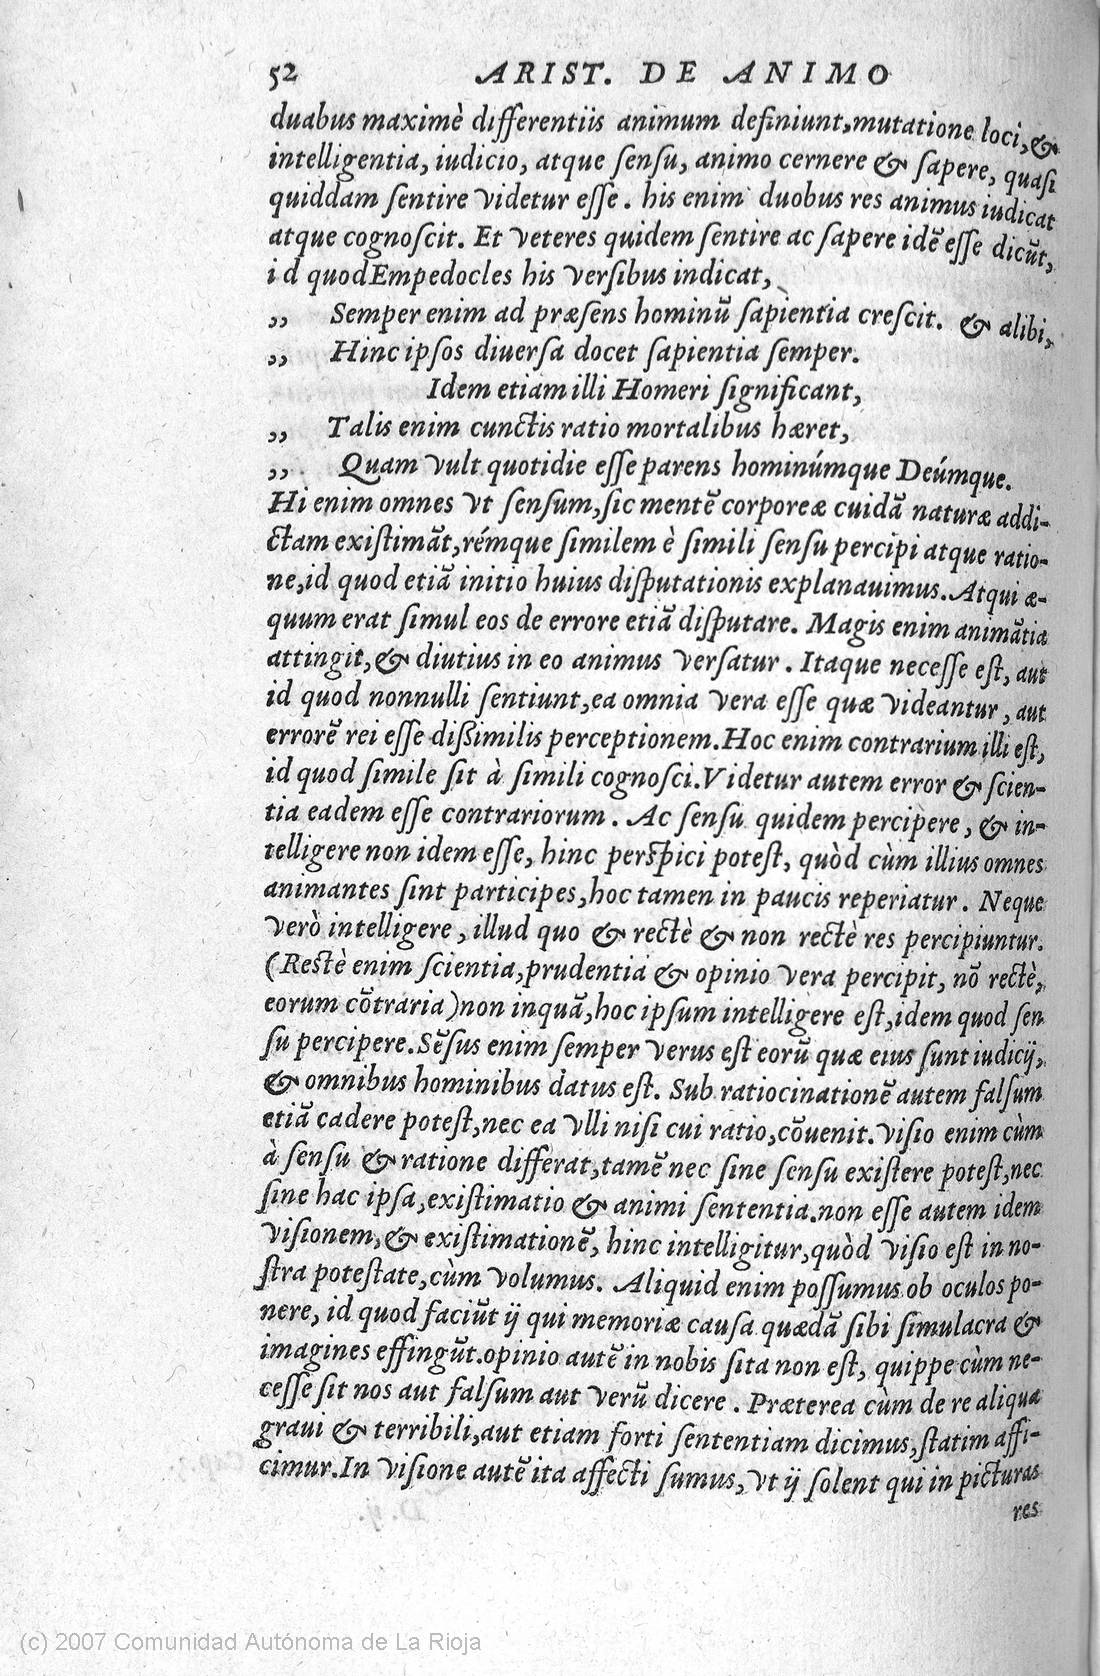 52 ARIST. DE ANIMO
duabus maximè differentiis animum definiunt, mutatione loci, &
intelligentia, iudicio, atque sensu, animo cernere & sapere, quasi
quiddam sentire videtur esse. his enim duobus res animus iudicat
atque cognoscit. Et veteres quidem sentire ac sapere idē esse dicūt,
id quod Empedocles his versibus indicat,
,, Semper enim ad præsens hominū sapientia crescit. & alibi,
,, Hinc ipsos diuersa docet sapientia semper.
Idem etiam illi Homeri significant,
,, Talis enim cunctis ratio mortalibus hæret,
,, Quam vult quotidie esse parens hominúmque Deúmque.
Hi enim omnes vt sensum, sic mentē corporeæ cuidā naturæ addi-
ctam existimāt, rémque similem è simili sensu percipi atque ratio-
ne, id quod etiā initio huius disputationis explanauimus. Atqui æ-
quum erat simul eos de errore etiā disputare. Magis enim animātia
attingit, & diutius in eo animus versatur. Itaque necesse est, aut
id quod nonnulli sentiunt, ea omnia vera esse quæ videantur, aut
errorē rei esse dißimilis perceptionem. Hoc enim contrarium illi est,
id quod simile sit à simili cognosci. Videtur autem error & scien-
tia eadem esse contrariorum. Ac sensu quidem percipere, & in-
telligere non idem esse, hinc perspici potest, quòd cùm illius omnes
animantes sint participes, hoc tamen in paucis reperiatur. Neque
verò intelligere, illud quo & rectè & non rectè res percipiuntur.
(Restè enim scientia, prudentia & opinio vera percipit, nō rectè,
eorum cōtraria) non inquā, hoc ipsum intelligere est, idem quod sen
su percipere. Sēsus enim semper verus est eorū quæ eius sunt iudicij,
& omnibus hominibus datus est. Sub ratiocinationē autem falsum
etiā cadere potest, nec ea vlli nisi cui ratio, cōuenit. visio enim cùm
à sensu & ratione differat, tamē nec sine sensu existere potest, nec
sine hac ipsa, existimatio & animi sententia. non esse autem idem
visionem, & existimationē, hinc intelligitur, quòd visio est in no-
stra potestate, cùm volumus. Aliquid enim possumus ob oculos po-
nere, id quod faciūt ij qui memoriæ causa quædā sibi simulacra &
imagines effingūt. opinio autē in nobis sita non est, quippe cùm ne-
cesse sit nos aut falsum aut verū dicere. Præterea cùm de re aliqua
graui & terribili, aut etiam forti sententiam dicimus, statim affi-
cimur. In visione autē ita affecti sumus, vt ij solent qui in picturas
res
(c) 2007 Comunidad Autónoma de La Rioja